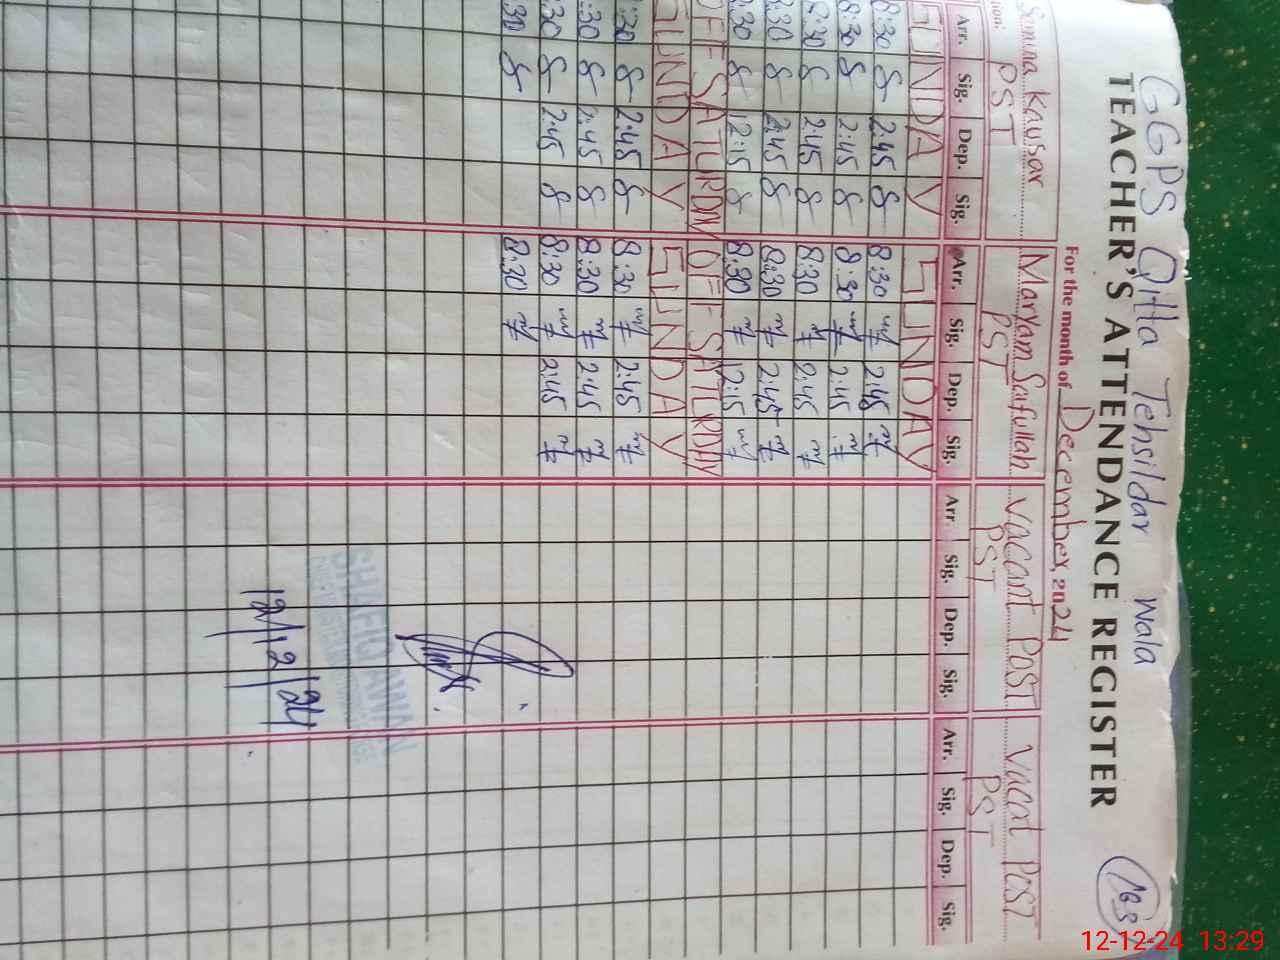 GGPS Qitta Tehsildar Wala
TEACHER'S ATTENDANCE REGISTER
For the month of December, 2024
Kausar Maryam Safullah Vacant Post Vacat Post
PST PST PST PST
Arr. Sig. Dep. Sig. Arr. Sig. Dep. Sig. Arr. Sig. Dep. Sig. Arr. Sig. Dep. Sig.
SUNDAY SUNDAY
8:30 2:45 8:30 2:45
8:30 2:45 8:30 2:45
8:30 2:45 8:30 2:45
8:30 2:45 8:30 2:45
8:30 12:15 8:30 12:15
OFF SATURDAY OFF SATURDAY
SUNDAY SUNDAY
:30 2:45 8:30 2:45
:30 2:45 8:30 2:45
:30 2:45 8:30 2:45
:30 8:30
SHAFIQ AWAN
12/12/24
12-12-24 13:29